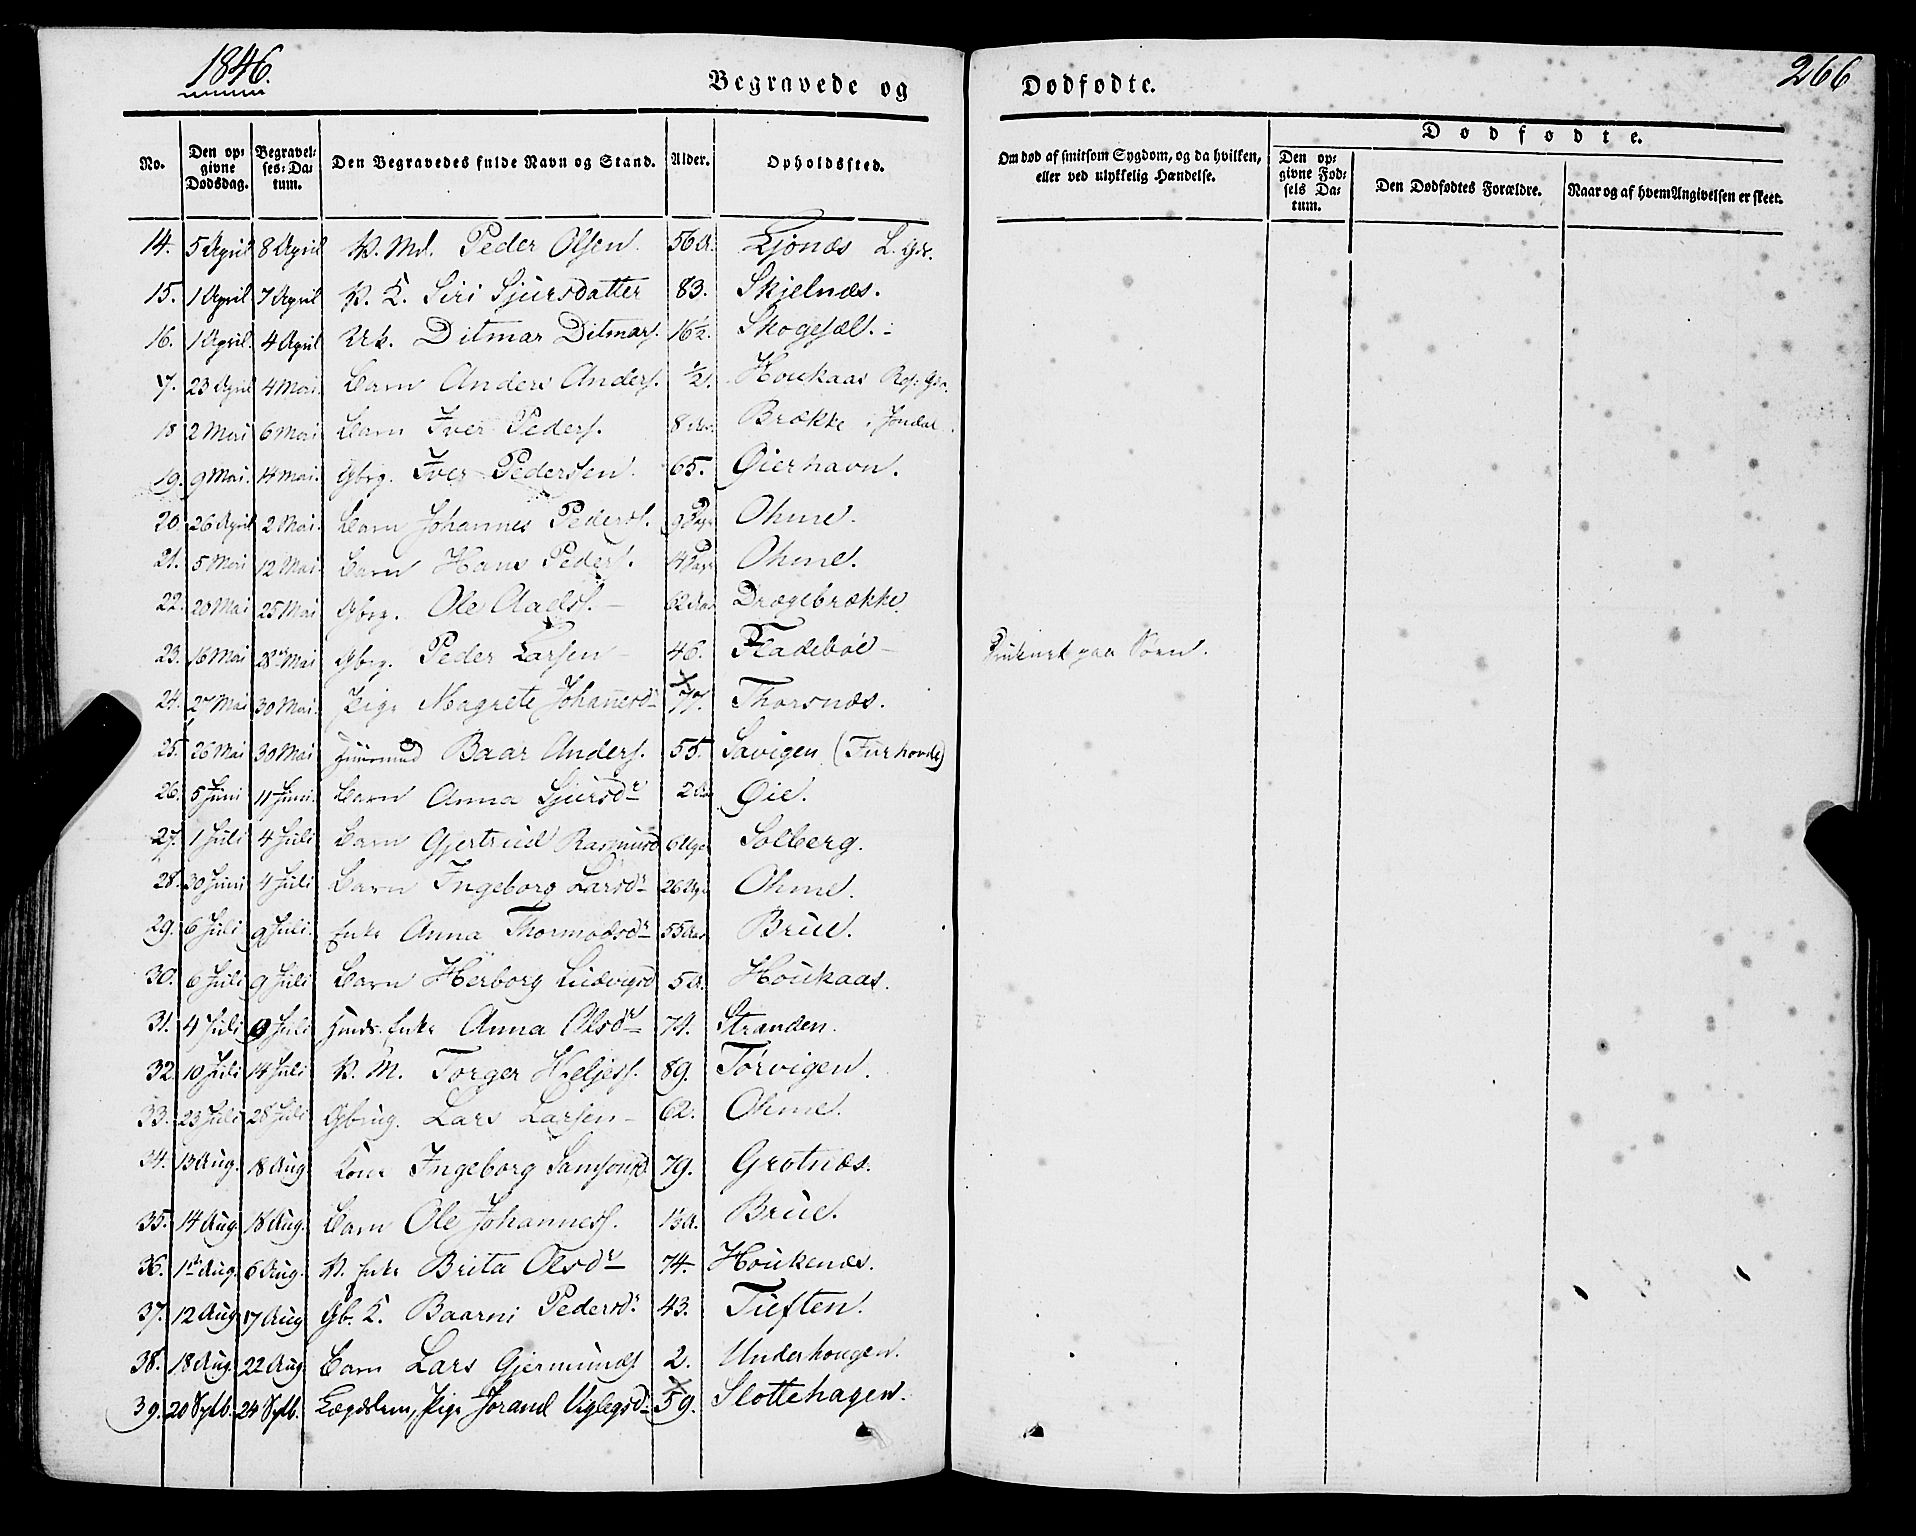 1846.
Begravede og Dødfødte.
266
No. | Den opgivne Dødsdag. | Begravelses-Datum. | Den Begravedes fulde Navn og Stand. | Alder. | Opholdssted. | Om død af smitsom Sygdom, og da hvilken, eller ved ulykkelig Hændelse. | Dødfødte. | Den opgivne Fødsels Datum. | Den Dødfødtes Forældre. | Naar og af hvem Angivelsen er skeet.
14. 5 April 8 April K. Md. Peder Olsen. 56 A. Ljonæs L. Gdr.
15. 1 April 7 April K. K. Siri Sjursdatter 83. Skjelnæs.
16. 1 April. 4 April Uk. Ditmar Ditmars. 16½. Skogesæl.
17. 23 April 4 Mai. Barn Anders Anders. ½. Houkaas
18 2 Mai 6 Mai Barn Iver Peders. 8 Brække i Jondal.
19. 9 Mai. 14 Mai. Gbrg. Iver Pedersen. 65. Øierhavn.
20. 26 April 2 Mai. Barn Johannes Peders. 9 Dage Ohme.
21. 5 Mai 12 Mai. Barn Hans Peders. 4 Dage Ohme.
22. 20 Mai 25 Mai Gbrg. Ole Aads. 62 Aar Drægebrække.
23. 16 Mai 28 Mai Gbrg. Peder Larsen 46. Fladebøe Druknet paa Søen.
24. 2 Mai 30 Mai. Pige Magrete Johannesdr Thorsnæs.
25. 26 Mai 30 Mai Huusmd Baar Anders. 55. Savigen (Furhovde)
26. 5 Juni 11 Juni. Barn Anna Sjursdr 2 Aar Øie.
27. 1 Juli 4 Juli Barn Gjertrud Rasmusd 6 Uger Solberg.
28. 30 Juni 4 Juli Barn Ingeborg Larsdr 26 Uger Ohme.
29. 6 Juli 9 Juli. Enke Anna Thormodsdr 55 Aar Brue.
30. 6 Juli 9 Juli Barn Herborg Ludvigsd 5 A. Houkaas.
31. 4 Juli 9 Juli Huds. Enke Anna Olsdr 74. Stranden.
32. 10 Juli 14 Juli K. M. Torger Heljes. 89. Tørvigen.
33. 23 Juli 28 Juli Gbrug. Lars Larsen 62. Ohme.
34. 13 Aug. 18 Aug Kone Ingeborg Samsonsd. 79. Grotnæs.
35. 14 Aug 18 Aug. Barn Ole Johanness. Brue.
36. 1ste Aug. 6 Aug. K. Enke Brita Olsdr 74. Houkenæs.
37. 12 Aug 17 Aug Gb. K. Baarni Pedersdr 43. Tueften.
38. 18 Aug. 22 Aug Barn Lars Gjermunds 2. Underhougen.
39. 20 Sptb. 24 Sptb. Lægdslem, Pige Jorand Viglegsdr 59. Slottehagen.